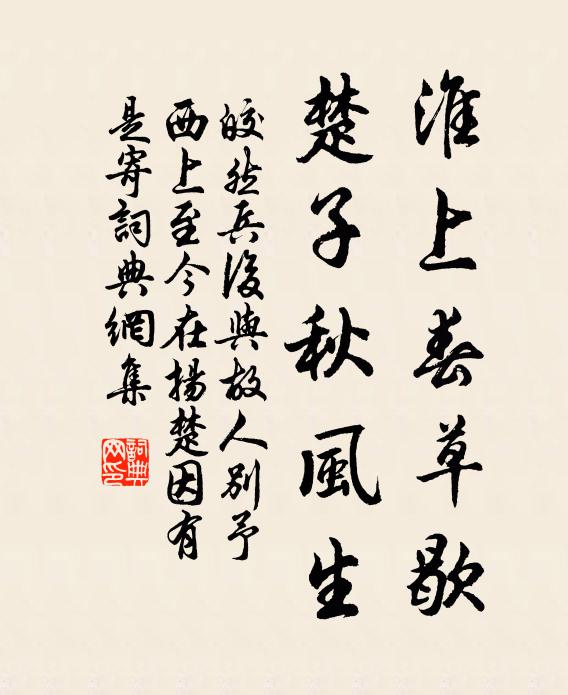 淮上春草歇
楚子秋風生
皎然兵後與故人別予
西上至今在揚楚因有
是寄詞典網集
詞典
网印